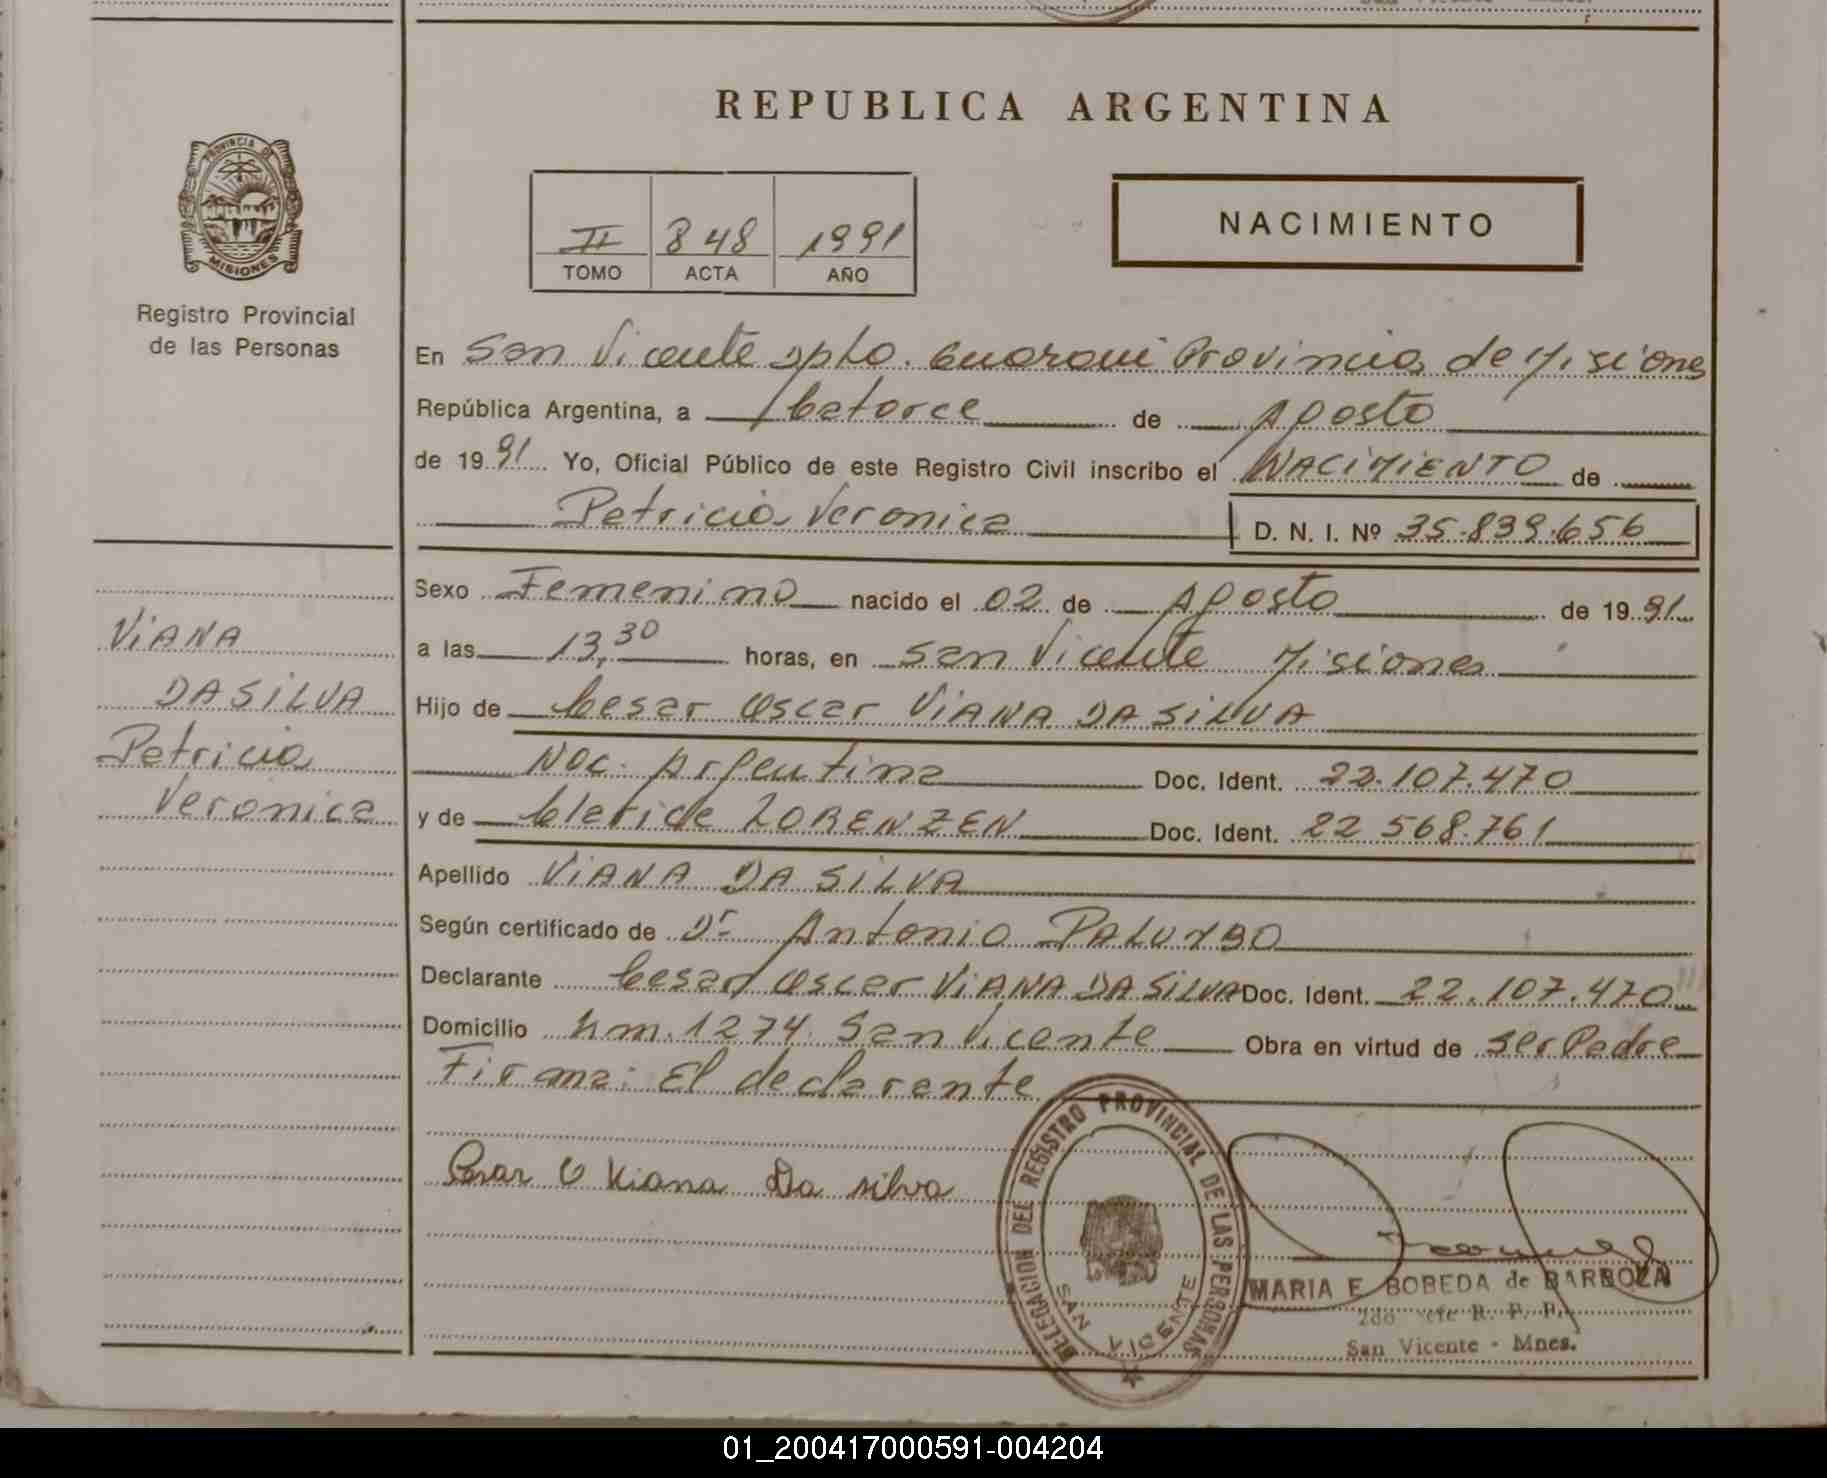 REPUBLICA ARGENTINA
PROVINCIA DE
MISIONES
Registro Provincial
de las Personas
II 848 1991
TOMO ACTA AÑO
NACIMIENTO
En San Vicente Dpto. Guarani Provincia de Misiones
República Argentina, a Catorce de Agosto
de 1991 Yo, Oficial Público de este Registro Civil inscribo el NACIMIENTO de
Patricia Veronica D. N. I. Nº 35.839.656
Sexo Femenino nacido el 02 de Agosto de 1991
a las 13,30 horas, en San Vicente Misiones
Hijo de Cesar Oscar VIANA DA SILVA
Nac. Argentina Doc. Ident. 22.107.470
y de LORENZEN Doc. Ident. 22 568.761
Apellido VIANA DA SILVA
Según certificado de Dr Antonio PALUMBO
Declarante Cesar Oscar VIANA DA SILVA Doc. Ident. 22.107.470
Domicilio Km. 1274. San Vicente Obra en virtud de ser Padre
Firma: El declarante
VIANA
DA SILVA
Patricia
Veronica
Cesar O Viana Da silva
DELEGACION DEL REGISTRO PROVINCIAL DE LAS PERSONAS
SAN VICENTE
MARIA E. BOBEDA de BARBOZA
2do Jefe R. P. P.
San Vicente - Mnes.
01_200417000591-004204